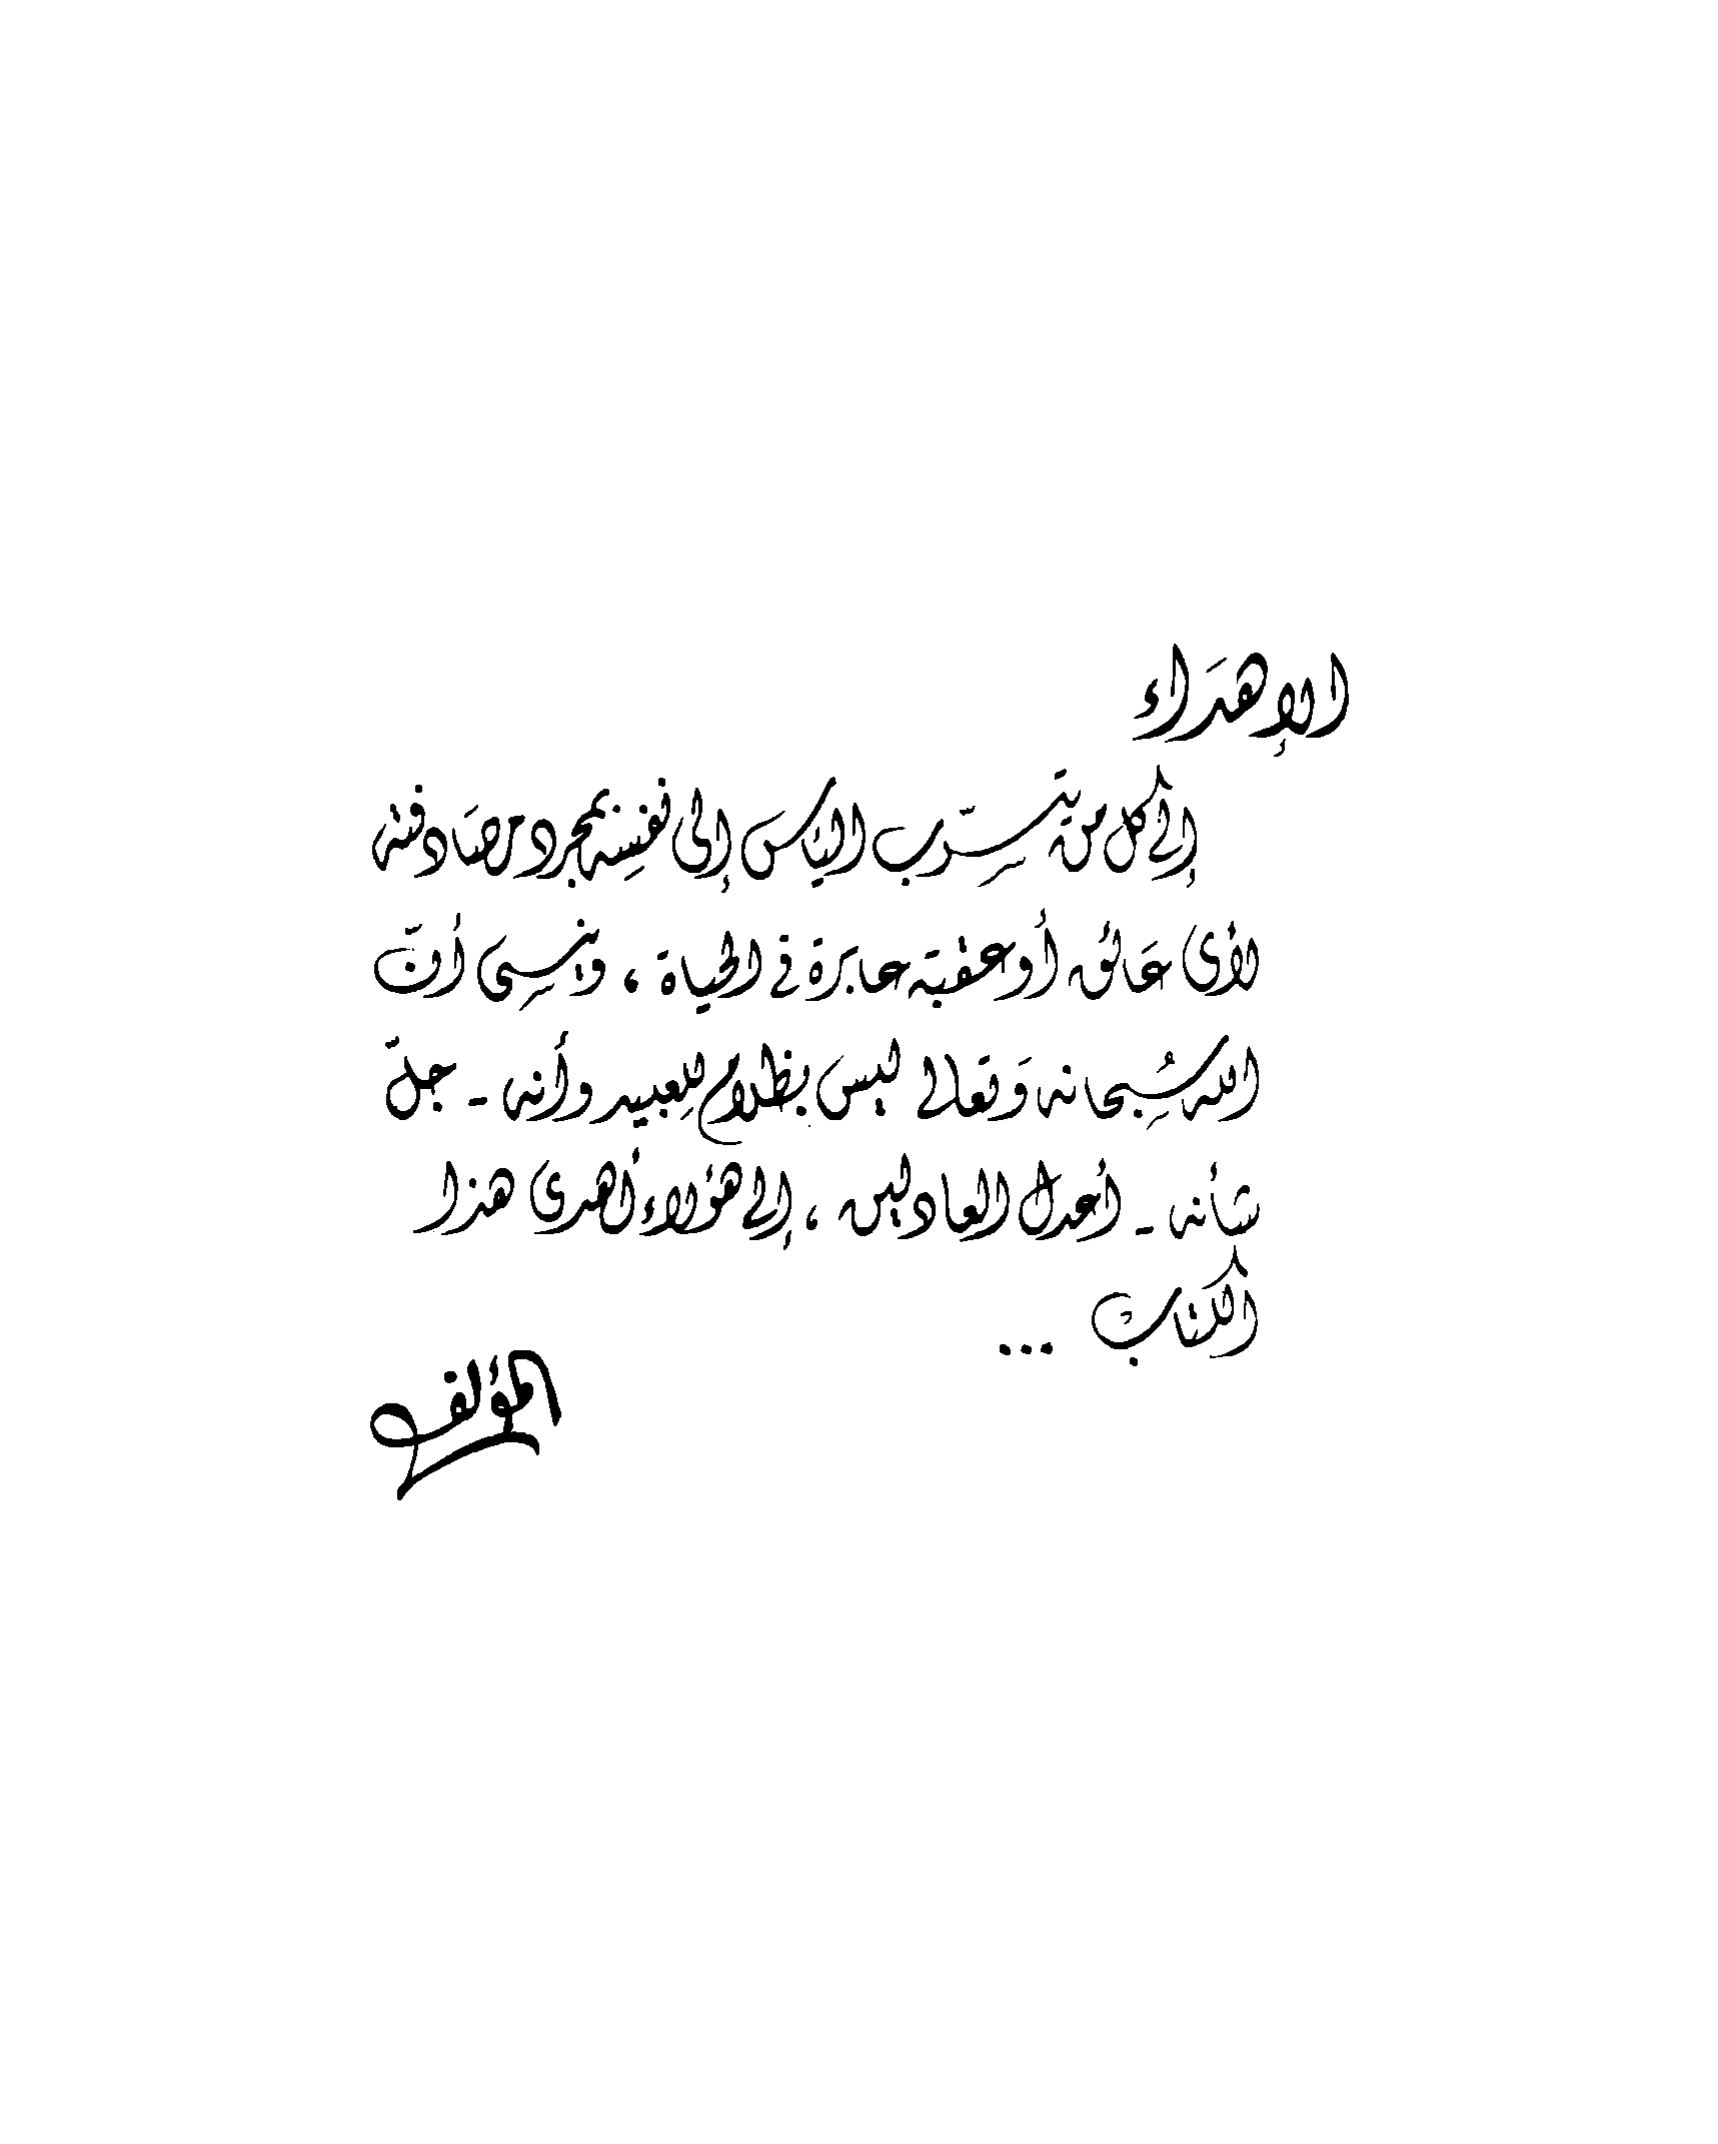 الإهداء
إلى كل من يتسرّب اليأس إلى نفسه بمجرد مصادفته
لأى عائق أو عقبة عابرة في الحياة ، وينسى أنّ
الله سُبحانه وَتعالى ليس بظلام للعبيد وأنه - جلّ
شأنه - أعدل العادلين ، إلى هؤلاء أهدى هذا
الكتاب ...
المؤلف